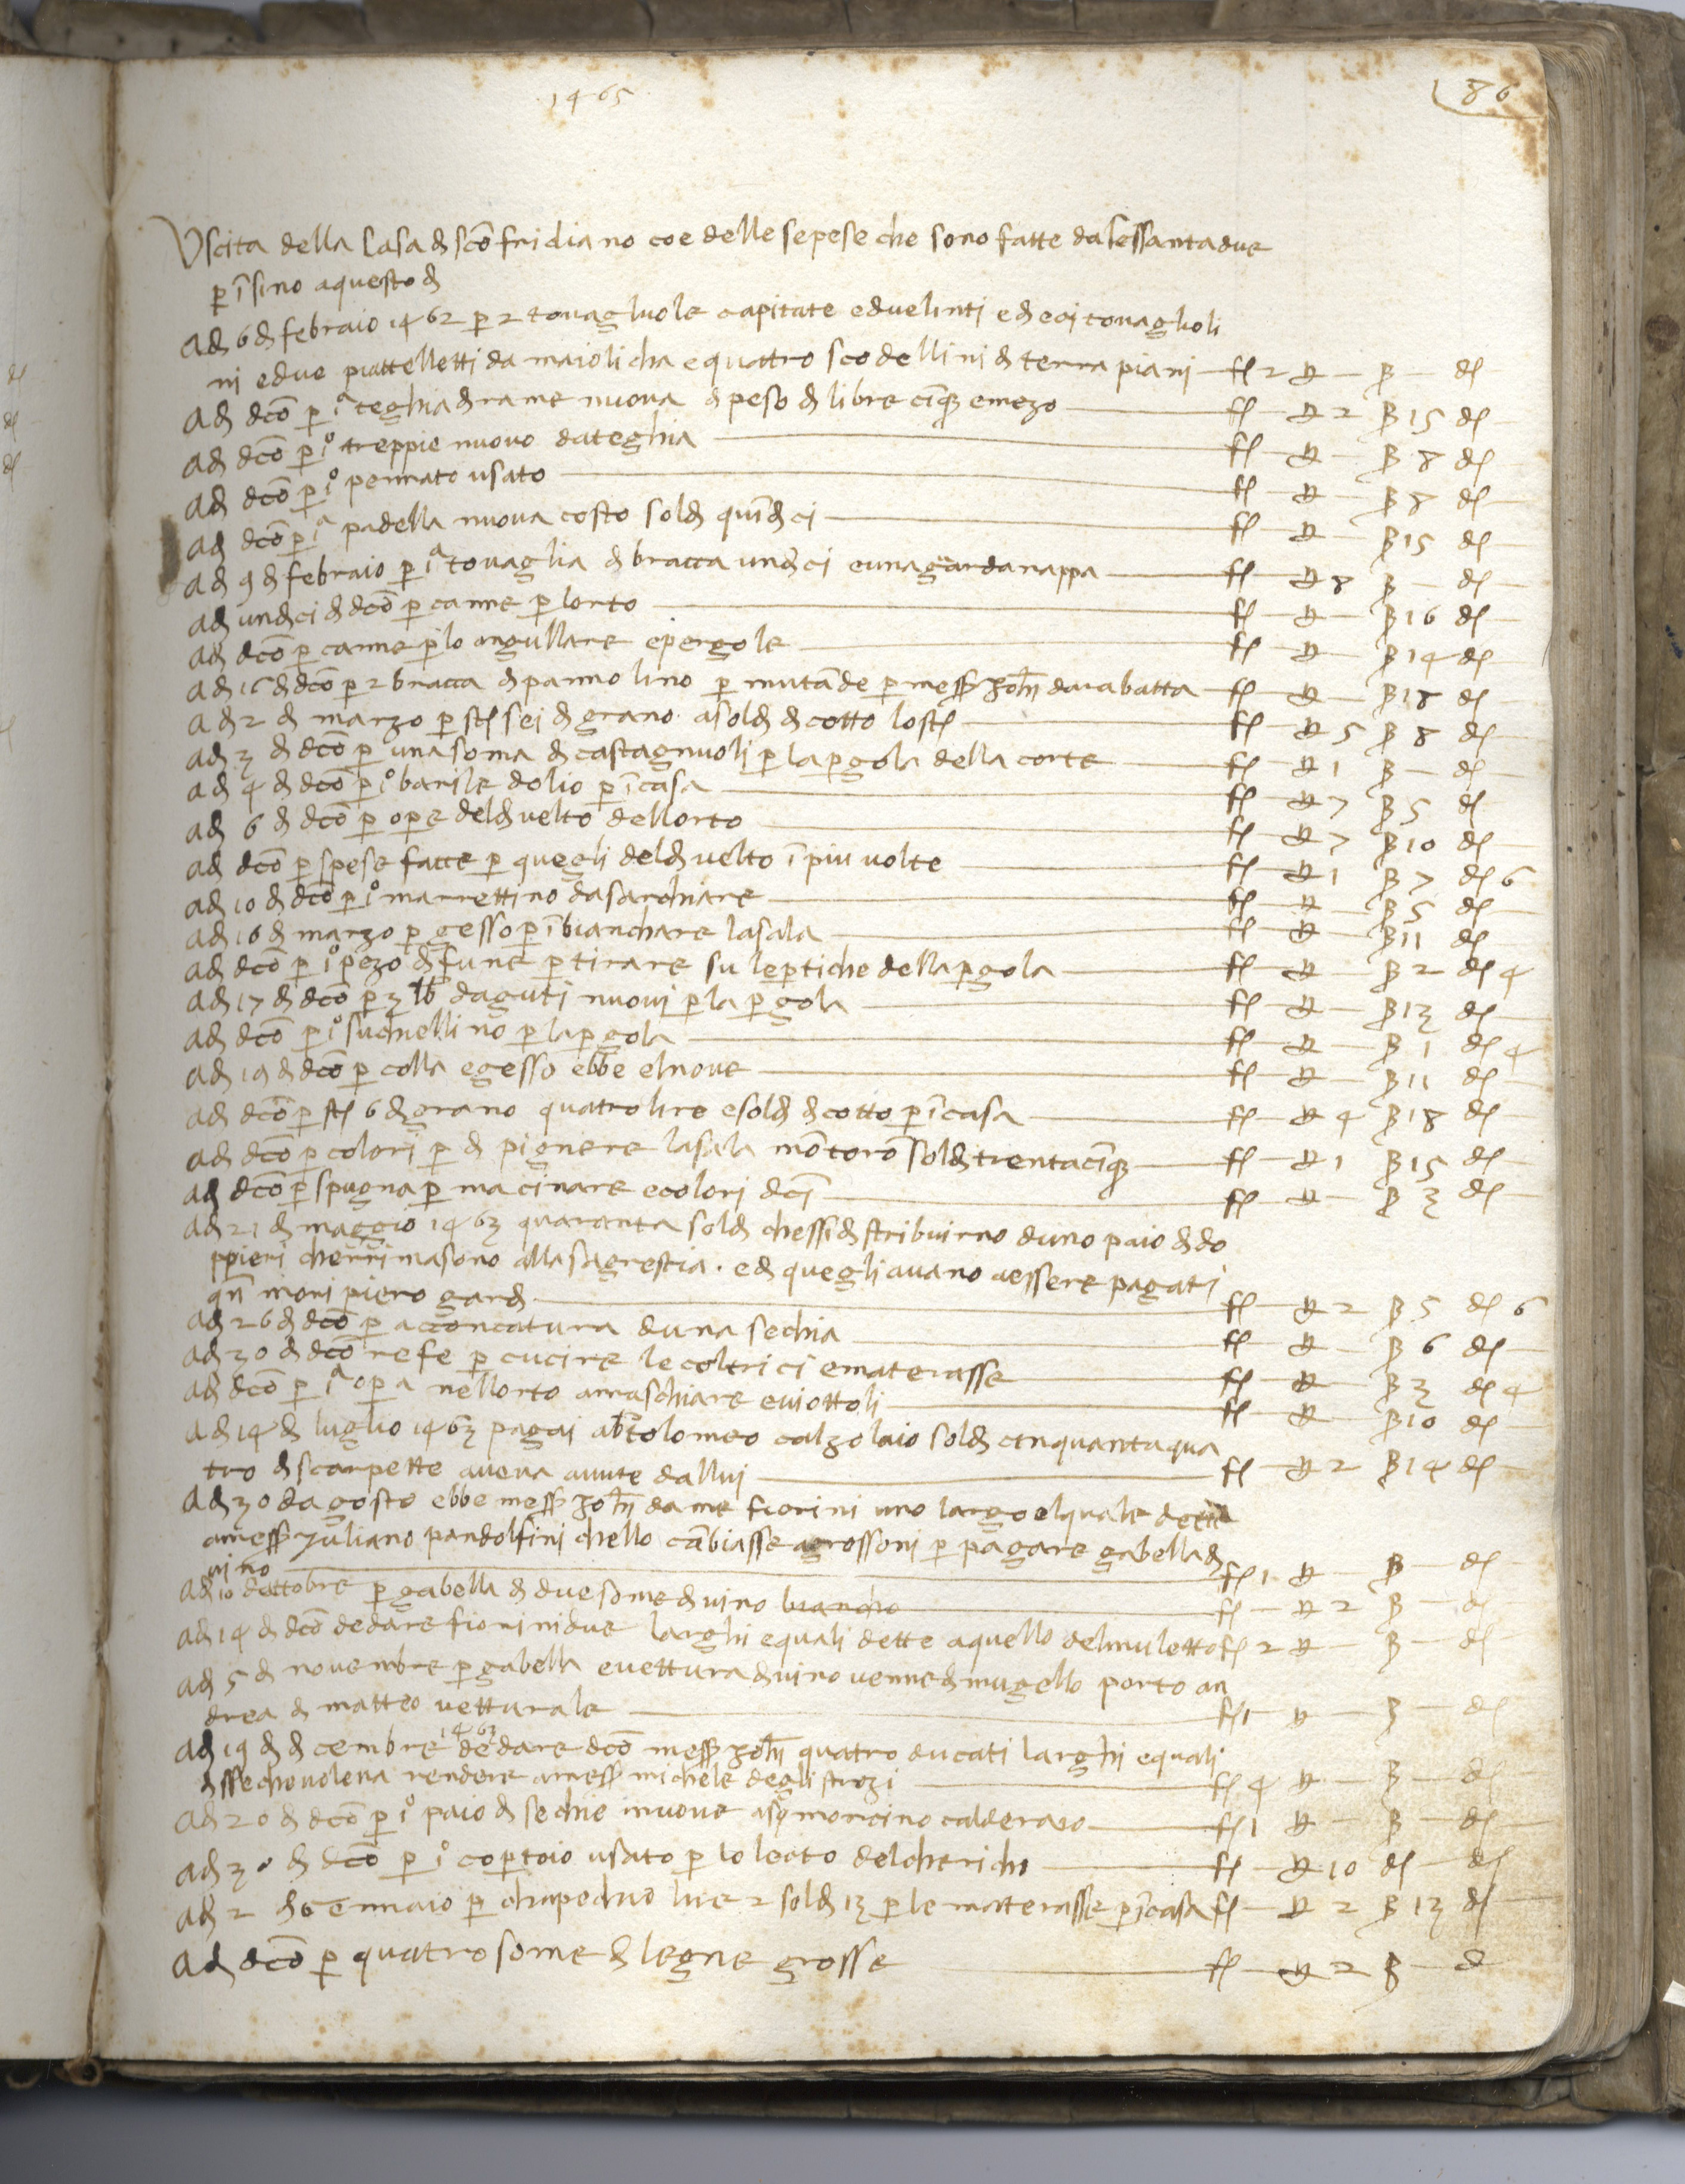 1465
86
Uscita della Casa di sco fridiano coe delle sepese che sono fatte da sessantadue
p isino aquesto di
adi 6 di febraio 1462 p 2 tovagluole capitate e due linti e dieci tovaglioli
ni e due piattelletti da maiolicha e quattro scodellini di terra piani fl 2 lb — ß — d —
adi dco p ia teghia di rame nuova di peso di libre cinqz e mezo fl — lb 2 ß 15 d —
adi dco p io treppie nuovo da teghia fl — lb — ß 8 d —
adi dco p io pennato usato fl — lb — ß 8 d —
adi dco p ia padella nuova costo soldi quindici fl — lb — ß 15 d —
adi 9 di febraio p ia tovaglia di bracca undici e una gardanappa fl — lb 8 ß — d —
adi undici di dco p canne p lorto fl — lb — ß 16 d —
adi dco p canne p lo angullare e pergole fl — lb — ß 14 d —
adi 16 di dco p 2 bracca di panno lino p mutade p mess johi davabatta fl — lb — ß 18 d —
adi 2 di marzo p st sei di grano a soldi dicotto lo st fl — lb 5 ß 8 d —
adi 3 di dco p una soma di castagnuoli p la pgola della corte fl — lb 1 ß — d —
adi 4 di dco p io barile dolio p i casa fl — lb 7 ß 5 d —
adi 6 di dco p opre del divelto dellorto fl — lb 7 ß 10 d —
adi dco p spese fatte p quegli del divelto i piu volte fl — lb 1 ß 7 d 6
adi 10 di dco p io marrettino da sarchiare fl — lb — ß 5 d —
adi 16 di marzo p gesso p ibianchare la sala fl — lb — ß 11 d —
adi dco p io pezo di fune p tirare su le ptiche della pgola fl — lb — ß 2 d 4
adi 17 di dco p 3 lb daguti nuovi p la pgola fl — lb — ß 13 d —
adi dco p io suchiellino p la pgola fl — lb — ß 1 d 4
adi 19 di dco p colla e gesso ebbe el nove fl — lb — ß 11 d —
adi dco p st 6 di grano quatro lire e soldi dicotto p i casa fl — lb 4 ß 18 d —
adi dco p colori p dipignere la sala motoro soldi trentacinqz fl — lb 1 ß 15 d —
adi dco p spugna p macinare e colori dci fl — lb — ß 3 d —
adi 21 di maggio 1463 quaranta soldi chessi distribuirno duno paio di do
ppieri cherrimasono alla sagrestia. e di quegli avano aessere pagati
qn mori piero gardi fl — lb 2 ß 5 d 6
adi 26 di dco p acconcatura duna sechia fl — lb — ß 6 d —
adi 30 di dco refe p cucire le coltrici e materasse fl — lb — ß 3 d 4
adi dco p ia opa nellorto arraschiare e viottoli fl — lb — ß 10 d —
adi 14 di luglio 1463 pagai abtolomeo calzolaio soldi cinquantaqua
tro di scarpette aveva avute dallui fl — lb 2 ß 14 d —
adi 30 dagosto ebbe mess johi da me fiorini uno largo elquale dette
amess Juliano pandolfini chello cabiasse agrossoni p pagare gabella di
vino fl 1 lb — ß — d —
adi 10 dottobre p gabella di due some di vino biancho fl — lb 2 ß — d —
adi 14 di dco de dare fiorini due larghi equali dette aquello del muletto fl 2 lb — ß — d —
adi 5 di novembre p gabella e vettura di vino venne di mugello porto an
drea di matteo vetturale fl 1 lb — ß — d —
adi 19 di dicembre 1463 de dare dco mess johi quatro ducati larghi equali
disse che voleva rendere amess michele degli strozi fl 4 lb — ß — d —
adi 20 di dco p io paio di sechie nuove asq moncino calderaio fl 1 lb — ß — d —
adi 30 di dco p io coptoio usato p lo lecto del chericho fl — lb 10 d — d —
adi 2 di Gennaio p chapechio lire 2 soldi 13 p le materasse p i casa fl — lb 2 ß 13 d —
adi dco p quatro some di legne grosse fl — lb 2 ß — d